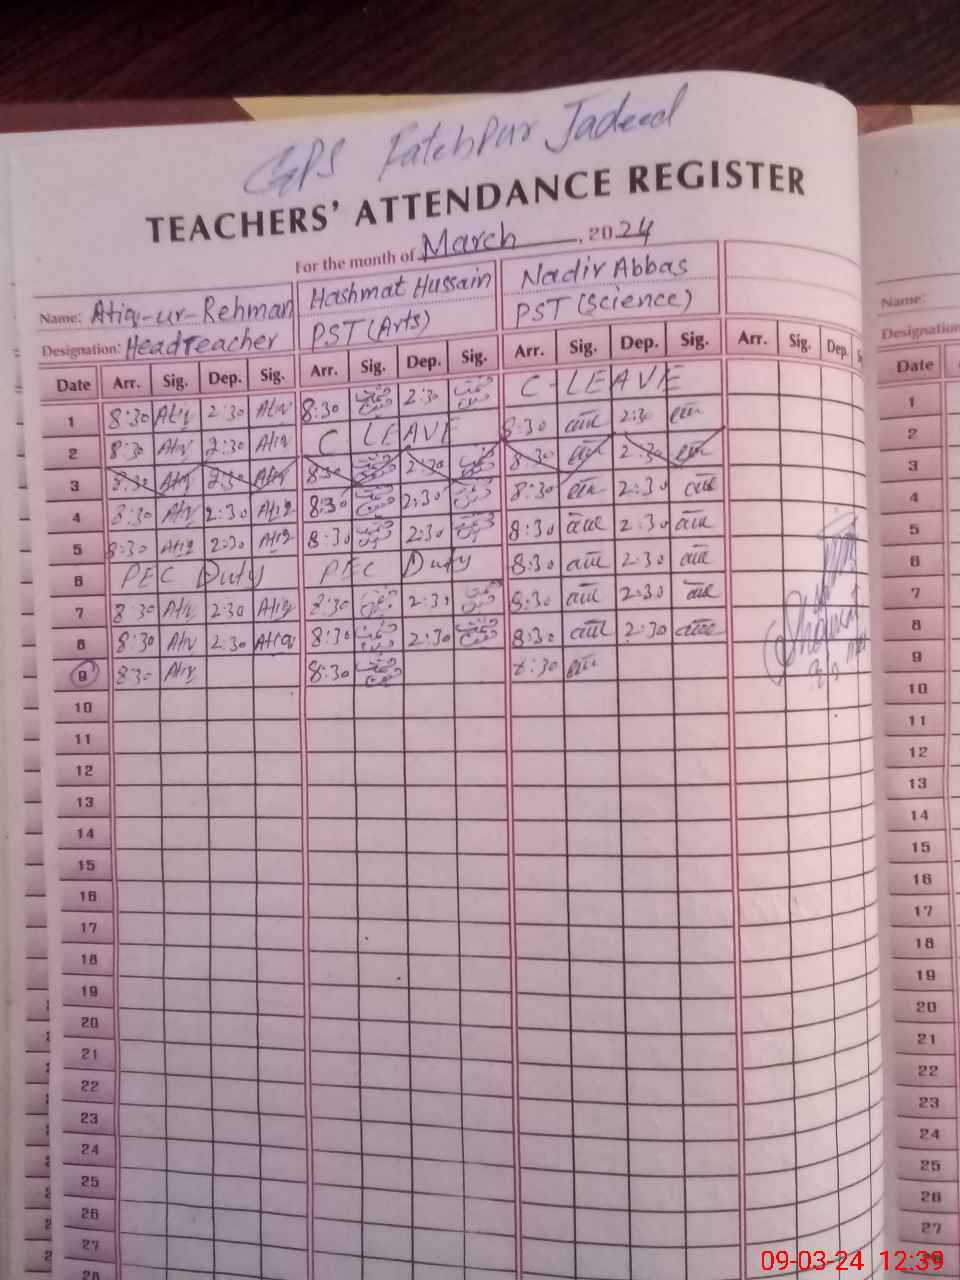 GPS Fatehpur Jadeed
TEACHERS' ATTENDANCE REGISTER
For the month of March, 2024
Name: Atiq-ur-Rehman Hashmat Hussain Nadir Abbas
Designation: Headteacher PST(Arts) PST(Science)
Date Arr. Sig. Dep. Sig. Arr. Sig. Dep. Sig. Arr. Sig. Dep. Sig. Arr. Sig. Dep.
1 8:30 Atiq 2:30 Atiq 8:30 2:30 C-LEAVE
2 8:30 Atiq 2:30 Atiq C LEAVE 8:30 2:30
3 8:30 Atiq 2:30 Atiq 8:30 2:30 8:30 2:30
4 8:30 Atiq 2:30 Atiq 8:30 2:30 8:30 2:30
5 8:30 Atiq 2:30 Atiq 8:30 2:30 8:30 2:30
6 PEC Duty PEC Duty 8:30 2:30
7 8:30 Atiq 2:30 Atiq 8:30 2:30 8:30 2:30
8 8:30 Atiq 2:30 Atiq 8:30 2:30 8:30 2:30
9 8:30 Atiq 8:30 8:30
10
11
12
13
14
15
16
17
18
19
20
21
22
23
24
25
26
27
28
Name:
Designation
Date
1
2
3
4
5
6
7
8
9
10
11
12
13
14
15
16
17
18
19
20
21
22
23
24
25
26
27
09-03-24 12:39